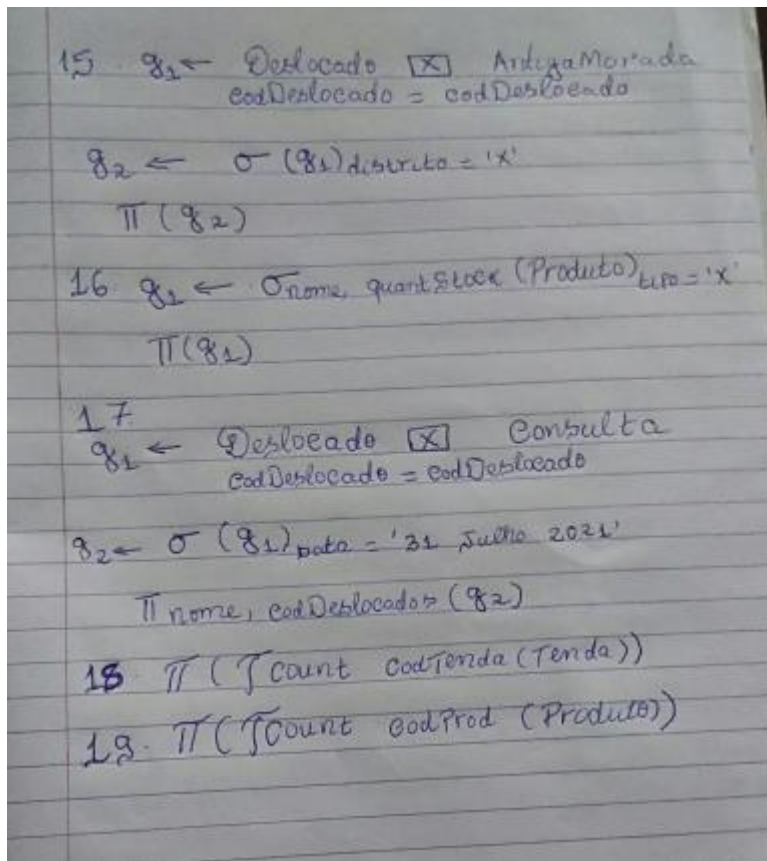 15 q1 ← Deslocado [X] AntigaMorada
codDeslocado = codDeslocado
q2 ← σ (q1) distrito = 'X'
π (q2)
16. q1 ← σ nome, quantStock (Produto) tipo = 'X'
π(q1)
17
q1 ← Deslocado [X] Consulta
codDeslocado = codDeslocado
q2 ← σ (q1) Data = '31 Julho 2021'
π nome, codDeslocados (q2)
18 π ( ℱ count codTenda (Tenda))
19. π ( ℱ count codProd (Produto))